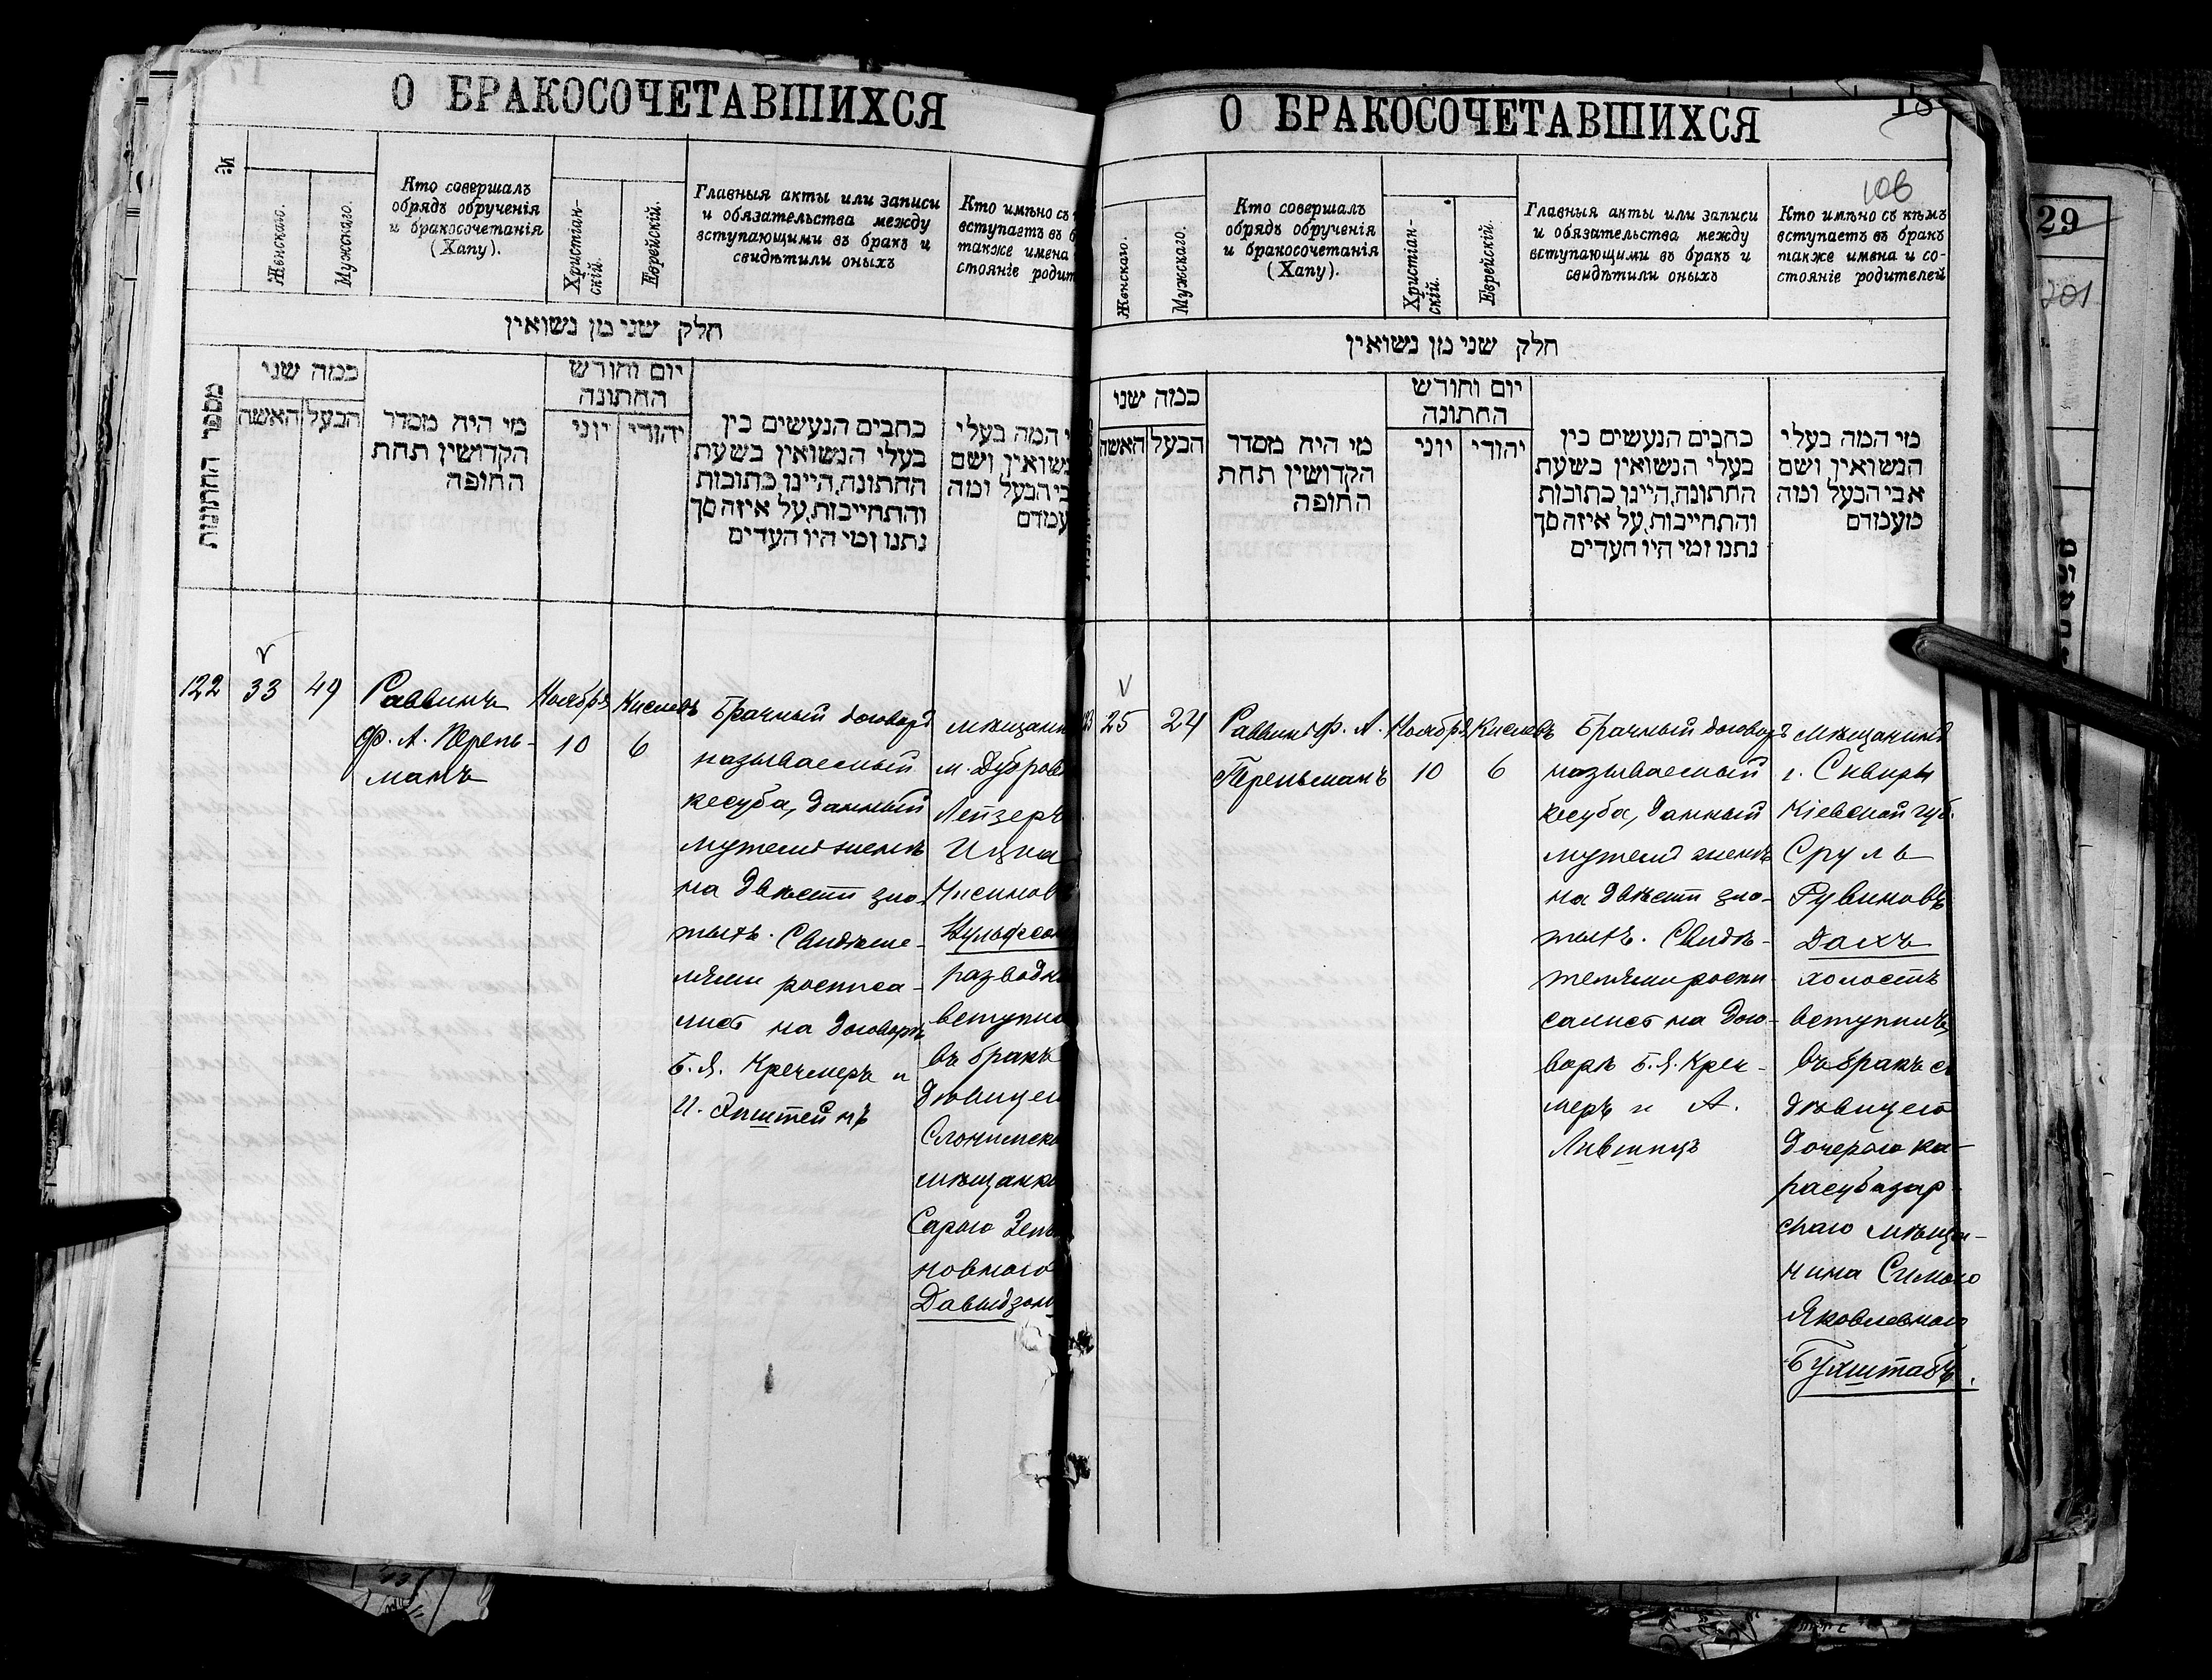 О БРАКОСОЧЕТАВШИХСЯ
№
Женскаго.
Мужскаго.
Кто совершалъ
обрядъ обрученія
и бракосочетанія
(Хапу).
Христіан-
скій.
Еврейскій.
Главныя акты или записи
и обязательства между
вступающими въ бракъ и
свидѣтили оныхъ
Кто имѣно съ
вступаетъ въ
также имена
стояніе родит
חלק שני מן נשואין
מספר החתונות
כמה שני
האשה
הבעל
מי היה מסדר
הקדושין תחת
החופה
יום וחודש
החתונה
יוני
יהודי
כתבים הנעשים בין
בעלי הנשואין בשעת
החתונה, היינו כתובות
והתחייבות, על איזה סך
נתנו ומי היו העדים
המה בעלי
נשואין ושם
בי הבעל ומה
עמדם
122
33
49
Раввинъ
Ф. А. Перель-
манъ
Ноябрь
10
Кислевъ
6
Брачный договоръ
называемый
кесуба, данный
мужемъ женѣ
на двѣсти зло-
тыхъ. Свидѣте-
лями росписа-
лись на договорѣ
Б. Я. Кречмеръ и
И. Эпштейнъ
мѣщани
м. Дубров
Лейзеръ
Ицка
Нисинов
Вульфсон
разводн
вступил
въ бракъ
дѣвицею
Слонимск
мѣщанк
Сарою Зель
новною
Давидзон
О БРАКОСОЧЕТАВШИХСЯ
18
106
Женскаго.
Мужскаго.
Кто совершалъ
обрядъ обрученія
и бракосочетанія
(Хапу).
Христіан-
скій.
Еврейскій.
Главныя акты или записи
и обязательства между
вступающими въ бракъ и
свидѣтили оныхъ
Кто имѣно съ кѣмъ
вступаетъ въ бракъ
также имена и со-
стояніе родителей
חלק שני מן נשואין
כמה שני
האשה
הבעל
מי היה מסדר
הקדושין תחת
החופה
יום וחודש
החתונה
יוני
יהודי
כתבים הנעשים בין
בעלי הנשואין בשעת
החתונה, היינו כתובות
והתחייבות, על איזה סך
נתנו ומי היו העדים
מי המה בעלי
הנשואין ושם
אבי הבעל ומה
מעמדם
25
24
Раввинъ Ф. А.
Перельманъ
Ноябрь
10
Кислевъ
6
Брачный договоръ
называемый
кесуба, данный
мужемъ женѣ
на двѣсти зло-
тыхъ. Свидѣ-
телями роспи-
сались на дого-
ворѣ Б. Я. Креч-
меръ и А.
Лившицъ
мѣщанинъ
г. Сквиры
Кіевской губ.
Сруль
Рувиновъ
Дахъ
холостъ
вступилъ
въ бракъ съ
дѣвицею
дочерью ка-
расубазар-
скаго мѣща-
нина Симою
Яковлевною
Бухштабъ.
29
201